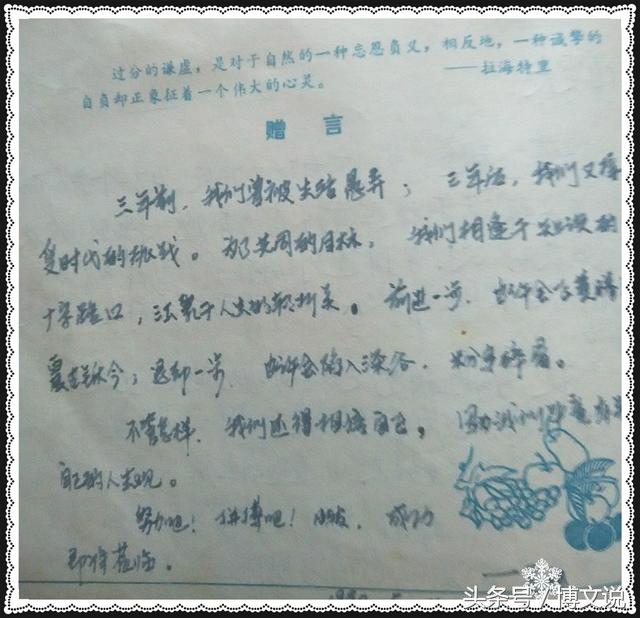 过分的谦虚，是对于自然的一种忘恩负义，相反地，一种诚挚的
自负却正象征着一个伟大的心灵。 ——拉海特里
赠 言
三年前，我们曾被生活愚弄；三年后，我们又接
受时代的挑战。为了共同的目标，我们相逢于知识的
十字路口，汇聚于人生的转折点。前进一步，也许会
退却一步，也许会陷入深谷，粉身碎骨。
不管怎样，我们还得相信自己，因为我们
自己的人生观。
努力吧！拼搏吧！ 成功
即将莅临。
头条号 / 博文说